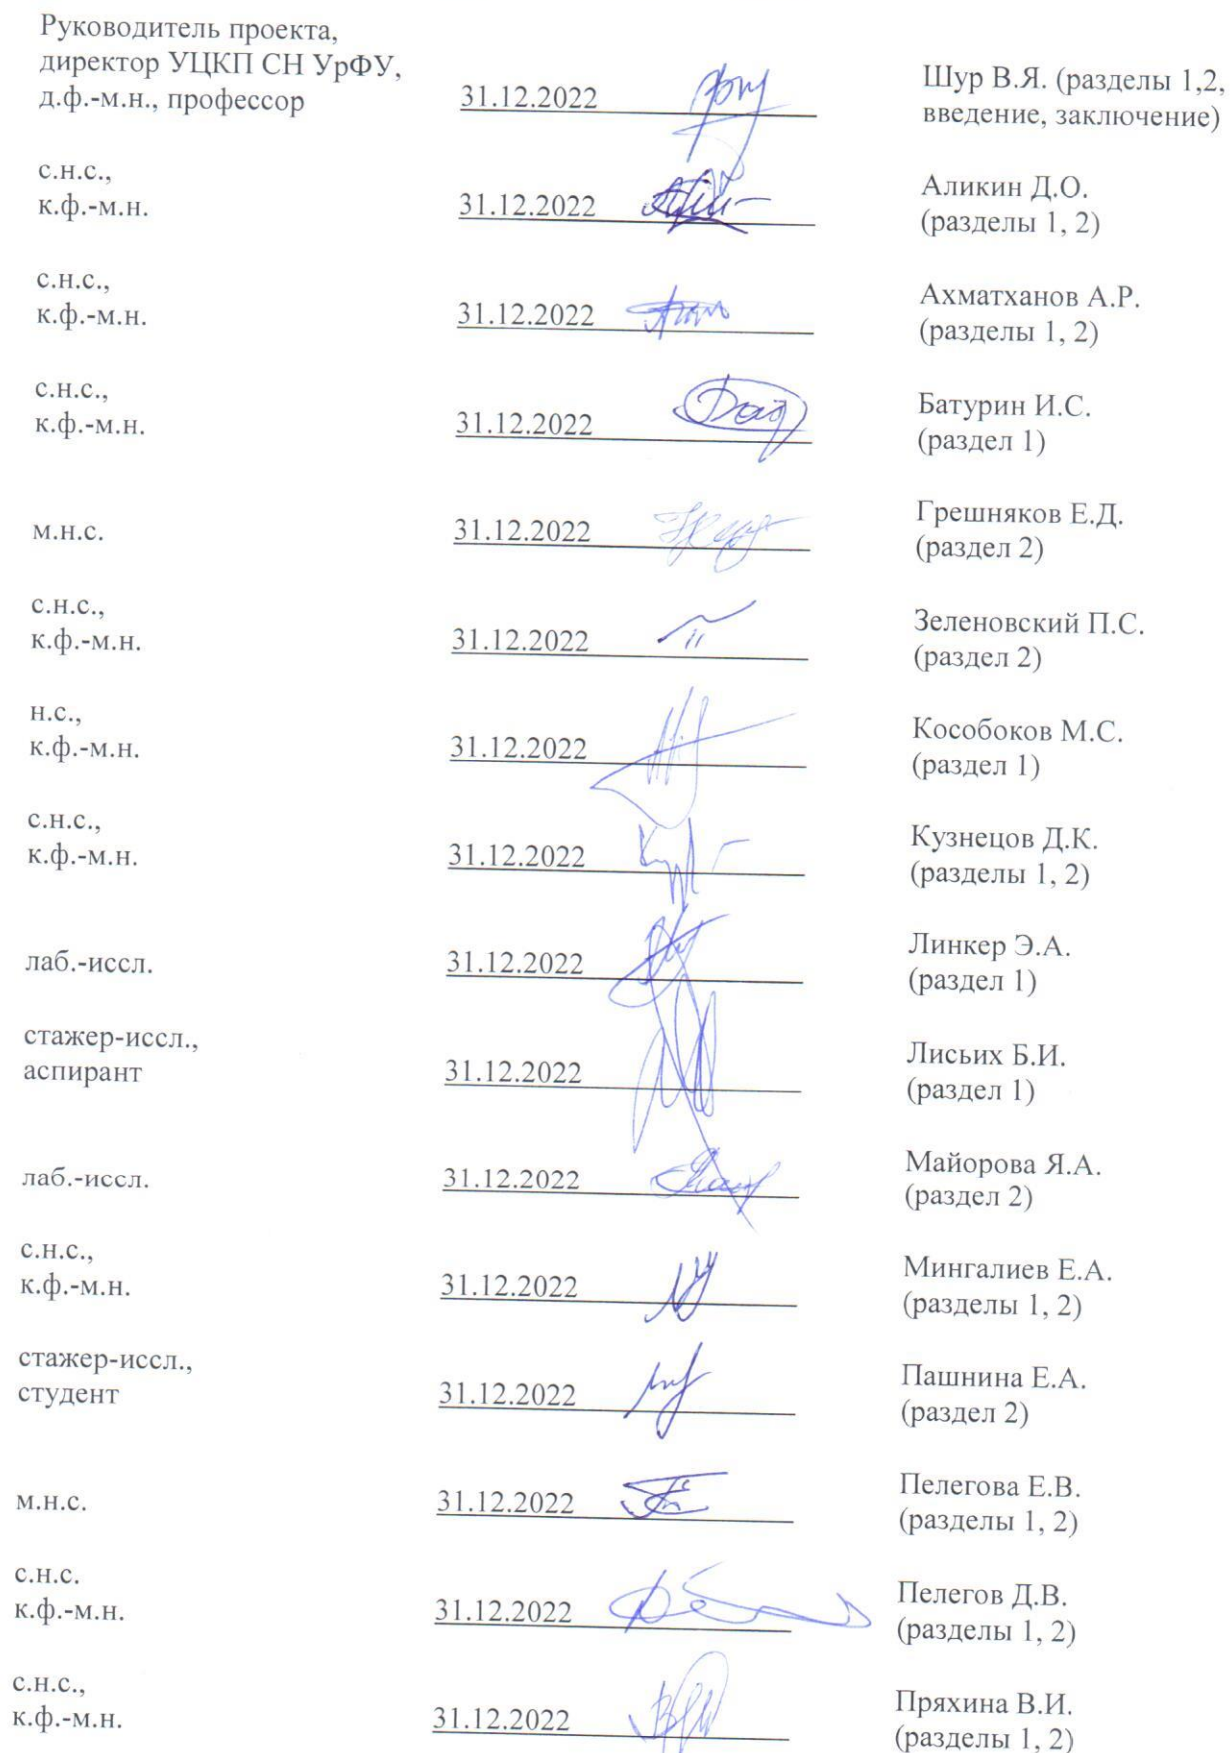 Руководитель проекта,
директор УЦКП СН УрФУ,
д.ф.-м.н., профессор 31.12.2022 Шур В.Я. (разделы 1,2,
введение, заключение)
с.н.с.,
к.ф.-м.н. 31.12.2022 Аликин Д.О.
(разделы 1, 2)
с.н.с.,
к.ф.-м.н. 31.12.2022 Ахматханов А.Р.
(разделы 1, 2)
с.н.с.,
к.ф.-м.н. 31.12.2022 Батурин И.С.
(раздел 1)
м.н.с. 31.12.2022 Грешняков Е.Д.
(раздел 2)
с.н.с.,
к.ф.-м.н. 31.12.2022 Зеленовский П.С.
(раздел 2)
н.с.,
к.ф.-м.н. 31.12.2022 Кособоков М.С.
(раздел 1)
с.н.с.,
к.ф.-м.н. 31.12.2022 Кузнецов Д.К.
(разделы 1, 2)
лаб.-иссл. 31.12.2022 Линкер Э.А.
(раздел 1)
стажер-иссл.,
аспирант 31.12.2022 Лисьих Б.И.
(раздел 1)
лаб.-иссл. 31.12.2022 Майорова Я.А.
(раздел 2)
с.н.с.,
к.ф.-м.н. 31.12.2022 Мингалиев Е.А.
(разделы 1, 2)
стажер-иссл.,
студент 31.12.2022 Пашнина Е.А.
(раздел 2)
м.н.с. 31.12.2022 Пелегова Е.В.
(разделы 1, 2)
с.н.с.
к.ф.-м.н. 31.12.2022 Пелегов Д.В.
(разделы 1, 2)
с.н.с.,
к.ф.-м.н. 31.12.2022 Пряхина В.И.
(разделы 1, 2)